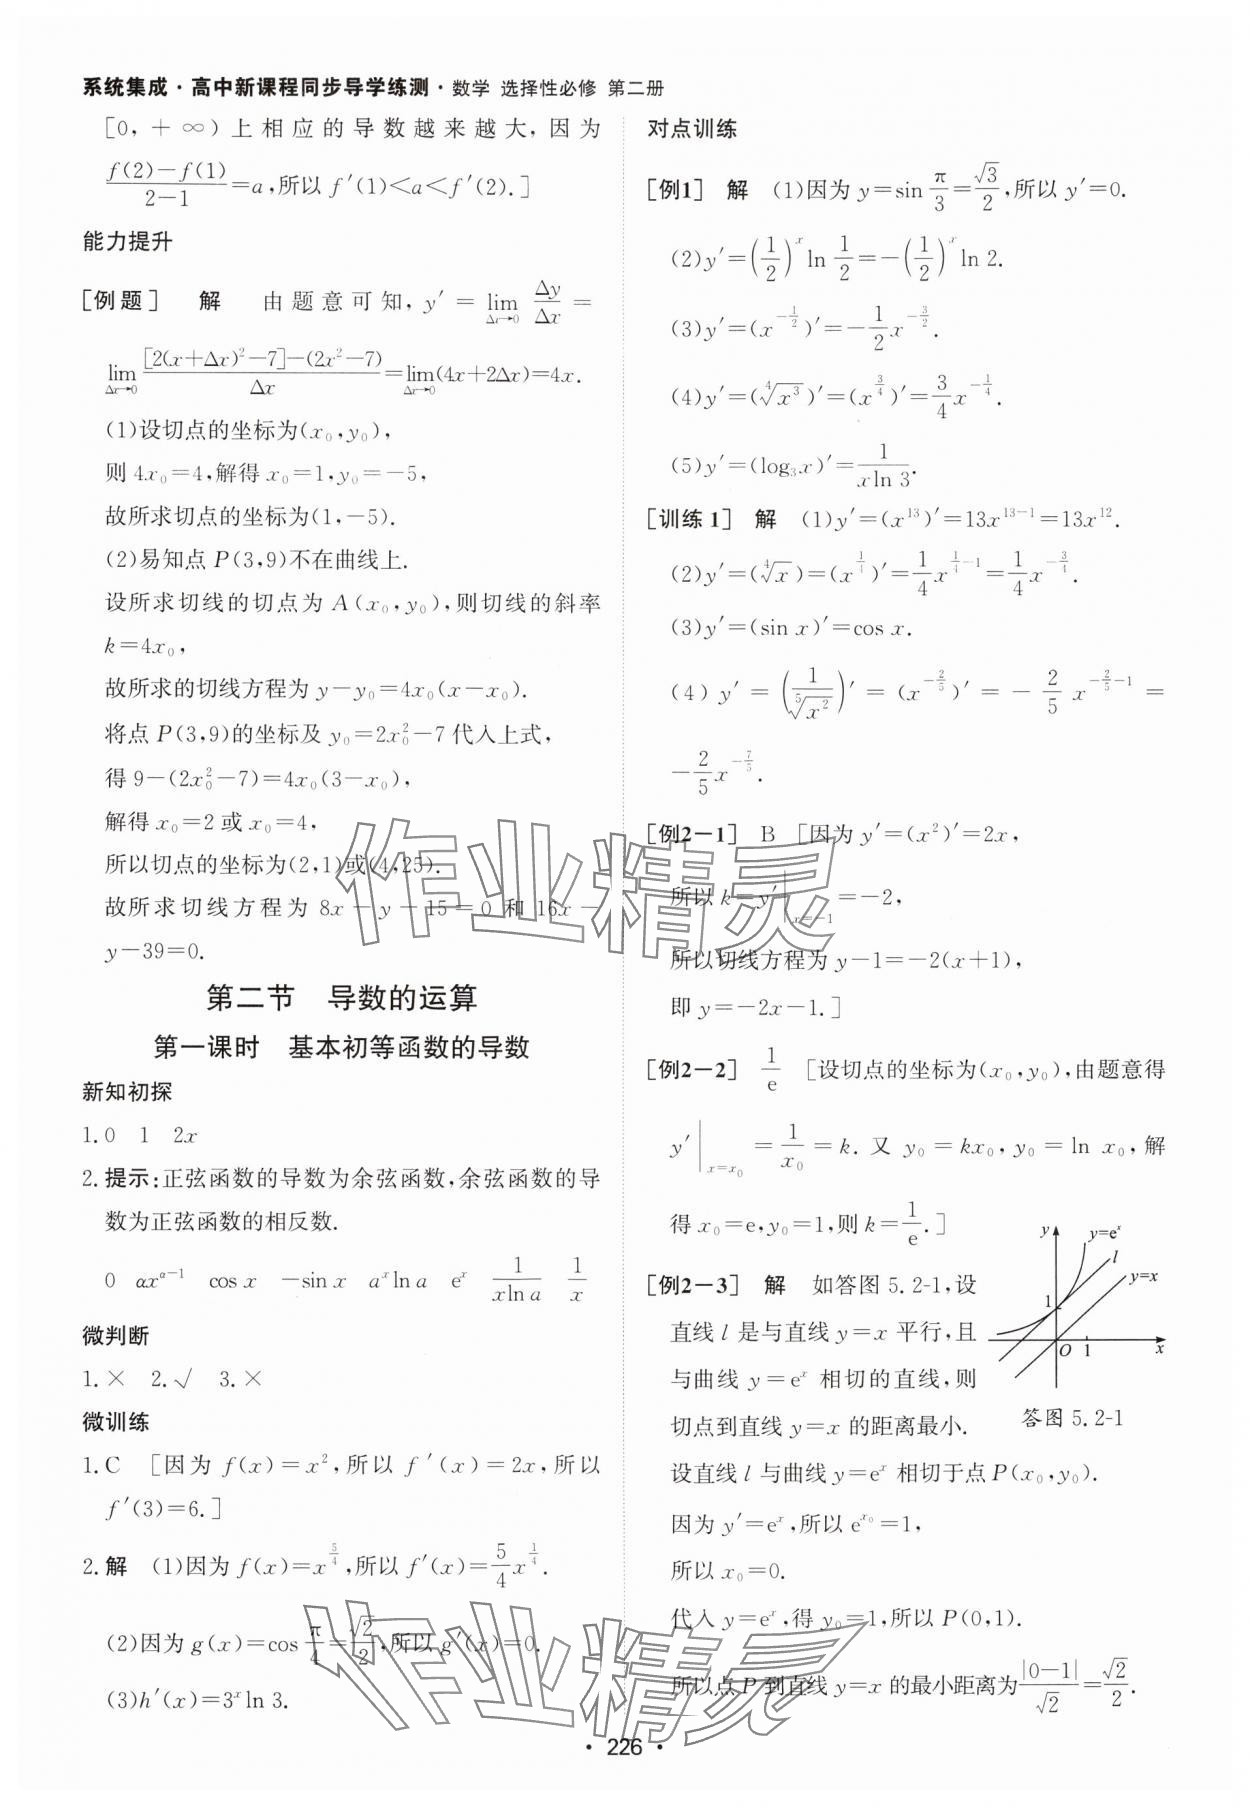 系统集成·高中新课程同步导学练测·数学 选择性必修 第二册
[0,+∞)上相应的导数越来越大,因为
$\frac{f(2)-f(1)}{2-1}=a$,所以 f′(1)<a<f′(2).]
能力提升
[例题] 解 由题意可知,$y'=\lim_{\Delta x\to 0}\frac{\Delta y}{\Delta x}=$
$\lim_{\Delta x\to 0}\frac{[2(x+\Delta x)^2-7]-(2x^2-7)}{\Delta x}=\lim_{\Delta x\to 0}(4x+2\Delta x)=4x.$
(1)设切点的坐标为(x₀,y₀),
则 4x₀=4,解得 x₀=1,y₀=-5,
故所求切点的坐标为(1,-5).
(2)易知点 P(3,9)不在曲线上.
设所求切线的切点为 A(x₀,y₀),则切线的斜率
k=4x₀,
故所求的切线方程为 y-y₀=4x₀(x-x₀).
将点 P(3,9)的坐标及 $y_0=2x_0^2-7$ 代入上式,
得 $9-(2x_0^2-7)=4x_0(3-x_0)$,
解得 x₀=2 或 x₀=4,
所以切点的坐标为(2,1)或(4,25).
故所求切线方程为 8x-y-15=0 和 16x-
y-39=0.
第二节 导数的运算
第一课时 基本初等函数的导数
新知初探
1.0 1 2x
2.提示:正弦函数的导数为余弦函数,余弦函数的导
数为正弦函数的相反数.
0 $\alpha x^{\alpha-1}$ cos x -sin x $a^x\ln a$ $e^x$ $\frac{1}{x\ln a}$ $\frac{1}{x}$
微判断
1.× 2.√ 3.×
微训练
1.C [因为 f(x)=x²,所以 f′(x)=2x,所以
f′(3)=6.]
2.解 (1)因为 $f(x)=x^{\frac{5}{4}}$,所以 $f'(x)=\frac{5}{4}x^{\frac{1}{4}}$.
(2)因为 $g(x)=\cos\frac{\pi}{4}=\frac{\sqrt{2}}{2}$,所以 g′(x)=0.
(3)$h'(x)=3^x\ln 3$.
对点训练
[例1] 解 (1)因为 $y=\sin\frac{\pi}{3}=\frac{\sqrt{3}}{2}$,所以 y′=0.
(2)$y'=\left(\frac{1}{2}\right)^x\ln\frac{1}{2}=-\left(\frac{1}{2}\right)^x\ln 2.$
(3)$y'=(x^{-\frac{1}{2}})'=-\frac{1}{2}x^{-\frac{3}{2}}.$
(4)$y'=(\sqrt[4]{x^3})'=(x^{\frac{3}{4}})'=\frac{3}{4}x^{-\frac{1}{4}}.$
(5)$y'=(\log_3 x)'=\frac{1}{x\ln 3}.$
[训练1] 解 (1)$y'=(x^{13})'=13x^{13-1}=13x^{12}.$
(2)$y'=(\sqrt[4]{x})=(x^{\frac{1}{4}})'=\frac{1}{4}x^{\frac{1}{4}-1}=\frac{1}{4}x^{-\frac{3}{4}}.$
(3)y′=(sin x)′=cos x.
(4)$y'=\left(\frac{1}{\sqrt[5]{x^2}}\right)'=(x^{-\frac{2}{5}})'=-\frac{2}{5}x^{-\frac{2}{5}-1}=$
$-\frac{2}{5}x^{-\frac{7}{5}}.$
[例2-1] B [因为 y′=(x²)′=2x,
所以 $k=y'|_{x=-1}=-2$,
所以切线方程为 y-1=-2(x+1),
即 y=-2x-1.]
[例2-2] $\frac{1}{e}$ [设切点的坐标为(x₀,y₀),由题意得
$y'|_{x=x_0}=\frac{1}{x_0}=k$. 又 y₀=kx₀,y₀=ln x₀,解
得 x₀=e,y₀=1,则 $k=\frac{1}{e}$.]
[例2-3] 解 如答图 5.2-1,设
直线 l 是与直线 y=x 平行,且
与曲线 $y=e^x$ 相切的直线,则
切点到直线 y=x 的距离最小.
y
$y=e^x$
l
y=x
1
O
1
x
答图 5.2-1
设直线 l 与曲线 $y=e^x$ 相切于点 P(x₀,y₀).
因为 $y'=e^x$,所以 $e^{x_0}=1$,
所以 x₀=0.
代入 $y=e^x$,得 y₀=1,所以 P(0,1).
所以点 P 到直线 y=x 的最小距离为$\frac{|0-1|}{\sqrt{2}}=\frac{\sqrt{2}}{2}$.
作业精灵
作业精灵
·226·